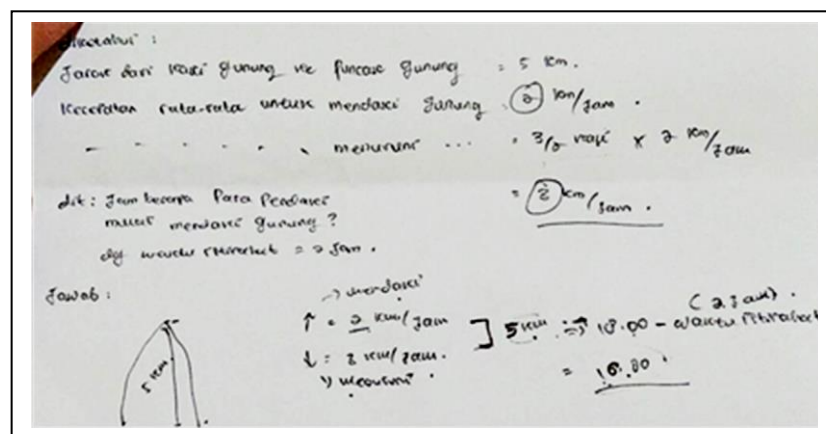 Diketahui :
Jarak dari kaki gunung ke puncak gunung = 5 km.
Kecepatan rata-rata untuk mendaki gunung = 2 km/jam.
- - - - - menuruni ... = 3/2 kali x 2 km/jam
= km/jam.
dit : Jam berapa Para Pendaki
mulai mendaki gunung?
dg waktu istirahat = 2 jam.
Jawab :
-> mendaki
↑ = 2 km/jam
↓ = km/jam.
menuruni
5 km
] 5 km => 18.00 - waktu istirahat
(2 jam).
= 16.00